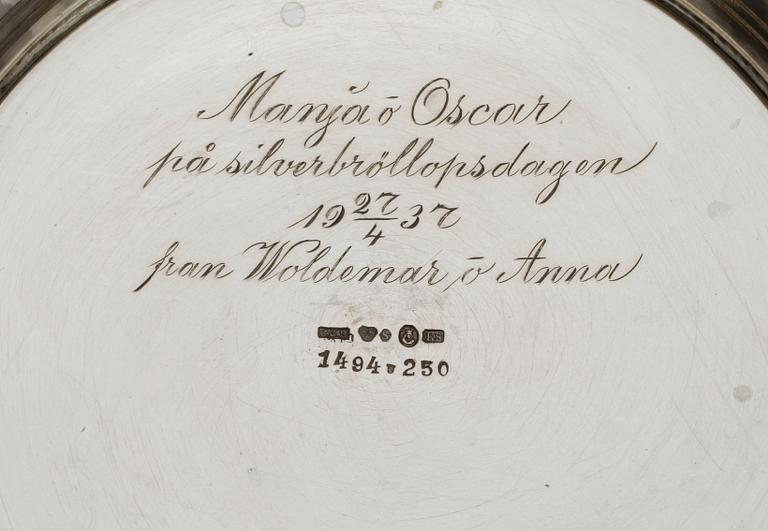 Manja ō Oscar
på silverbröllopsdagen
19 27/4 37
fran Woldemar, ō Anna
S
1494 250